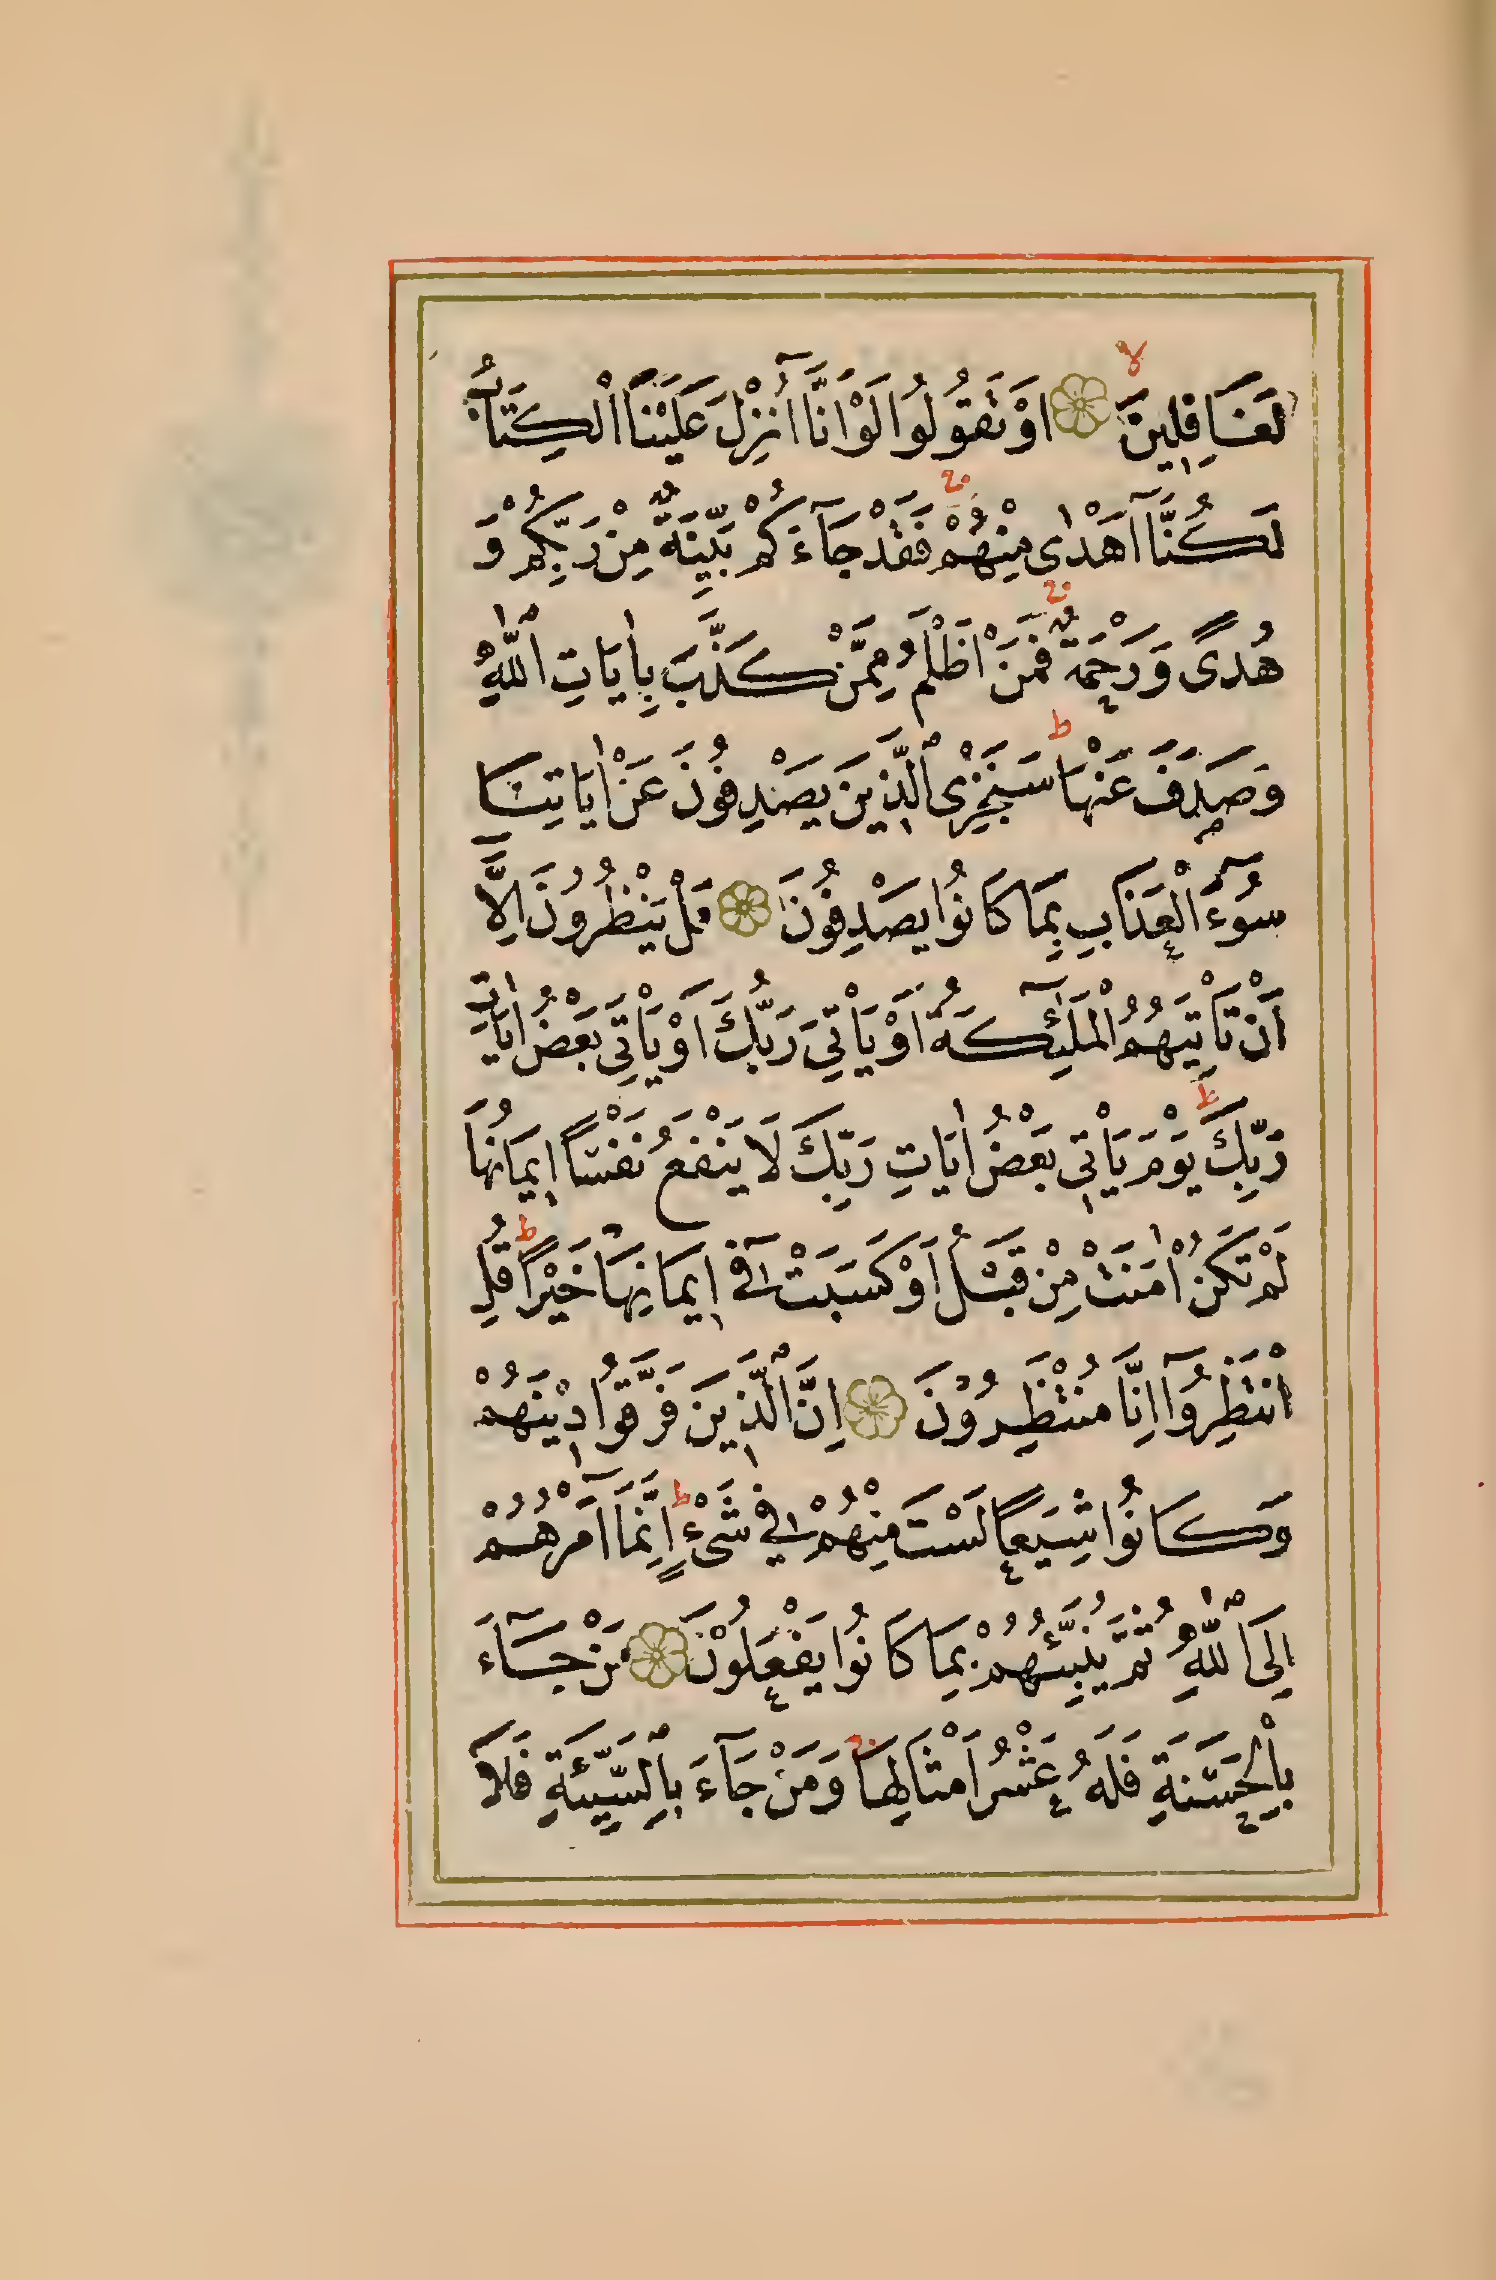 لَغَافِلِينَ ۙ اَوْ تَقُولُوا لَوْ اَنَّا اُنْزِلَ عَلَيْنَا الْكِتَابُ
لَكُنَّا اَهْدٰى مِنْهُمْ ۚ فَقَدْ جَاءَكُمْ بَيِّنَةٌ مِنْ رَبِّكُمْ وَ
هُدًى وَرَحْمَةٌ ۚ فَمَنْ اَظْلَمُ مِمَّنْ كَذَّبَ بِاٰيَاتِ اللّٰهِ
وَصَدَفَ عَنْهَا ۜ سَنَجْزِى الَّذِينَ يَصْدِفُونَ عَنْ اٰيَاتِنَا
سُوءَ الْعَذَابِ بِمَا كَانُوا يَصْدِفُونَ هَلْ يَنْظُرُونَ اِلَّا
اَنْ تَاْتِيَهُمُ الْمَلٰئِكَةُ اَوْ يَاْتِىَ رَبُّكَ اَوْ يَاْتِىَ بَعْضُ اٰيَاتِ
رَبِّكَ ط يَوْمَ يَاْتِى بَعْضُ اٰيَاتِ رَبِّكَ لَا يَنْفَعُ نَفْسًا اِيمَانُهَا
لَمْ تَكُنْ اٰمَنَتْ مِنْ قَبْلُ اَوْ كَسَبَتْ فِى اِيمَانِهَا خَيْرًا ط قُلِ
انْتَظِرُوا اِنَّا مُنْتَظِرُونَ اِنَّ الَّذِينَ فَرَّقُوا دِينَهُمْ
وَكَانُوا شِيَعًا لَسْتَ مِنْهُمْ فِى شَىْءٍ ط اِنَّمَا اَمْرُهُمْ
اِلَى اللّٰهِ ثُمَّ يُنَبِّئُهُمْ بِمَا كَانُوا يَفْعَلُونَ مَنْ جَاءَ
بِالْحَسَنَةِ فَلَهُ عَشْرُ اَمْثَالِهَا ۚ وَمَنْ جَاءَ بِالسَّيِّئَةِ فَلَا